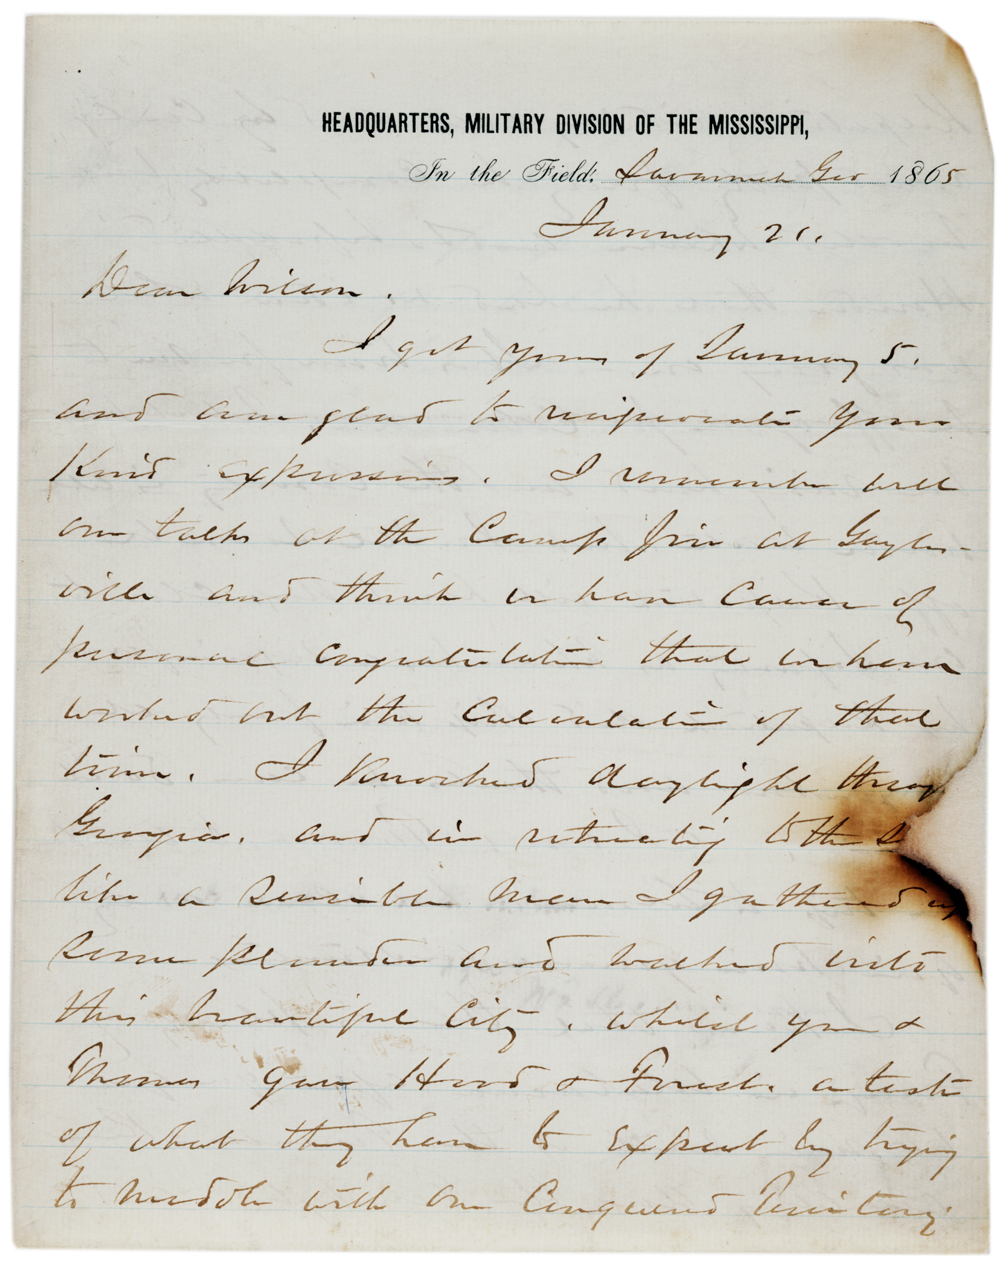 HEADQUARTERS, MILITARY DIVISION OF THE MISSISSIPPI,
In the Field: Savannah Geo 1865
January 21.
Dear Wilson.
I got yours of January 5.
and am glad to reciprocate your
Kind expressions. I remember well
our talks at the Camp fire at Gayles-
ville and think we have Cause of
personal congratulation that we have
worked out the Calculation of that
time. I Knocked daylight throug
Georgia. and in retreating to the S
like a sensible man I gathered up
some plunder and walked into
this beautiful City. whilst you &
Thomas gave Hood & Forrest. a taste
of what they have to Expect by trying
to meddle with our Conquered Territory.